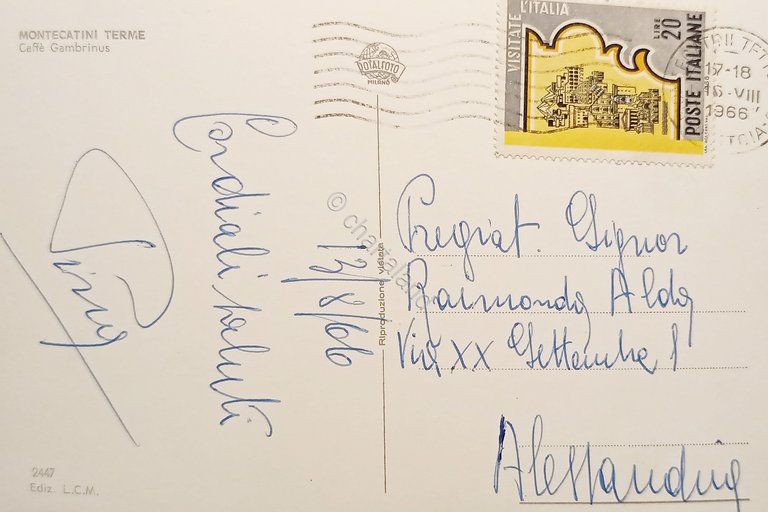 MONTECATINI TERME
Caffè Gambrinus
ROTALFOTO
MILANO
VISITATE L'ITALIA
LIRE 20
POSTE ITALIANE
17-18
VIII
1966
Cordiali saluti
13/8/66
Pregiat. Signor
Raimondo Aldo
Via XX Settembre 1
Alessandria
Riproduzione vietata
2447
Ediz. L.C.M.